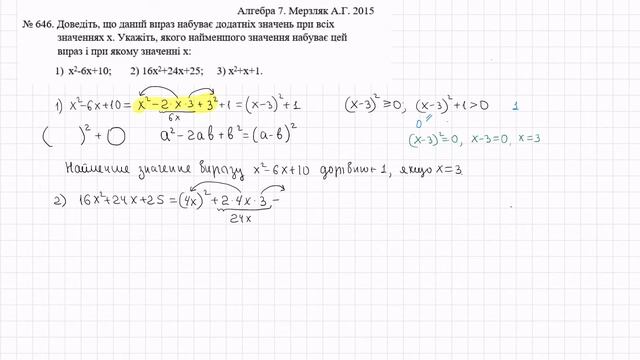 Алгебра 7. Мерзляк А.Г. 2015
№ 646. Доведіть, що даний вираз набуває додатніх значень при всіх
значеннях x. Укажіть, якого найменшого значення набуває цей
вираз і при якому значенні x:
1) x²-6x+10; 2) 16x²+24x+25; 3) x²+x+1.
1) x²-6x+10 = x²-2·x·3+3²+1 = (x-3)²+1 (x-3)² ≥ 0; (x-3)²+1>0 1
6x 0 (x-3)²=0, x-3=0, x=3
( )² + ○ a²-2ab+b² = (a-b)²
Найменше значення виразу x²-6x+10 дорівнює 1, якщо x=3
2) 16x²+24x+25 = (4x)²+2·4x·3 -
24x